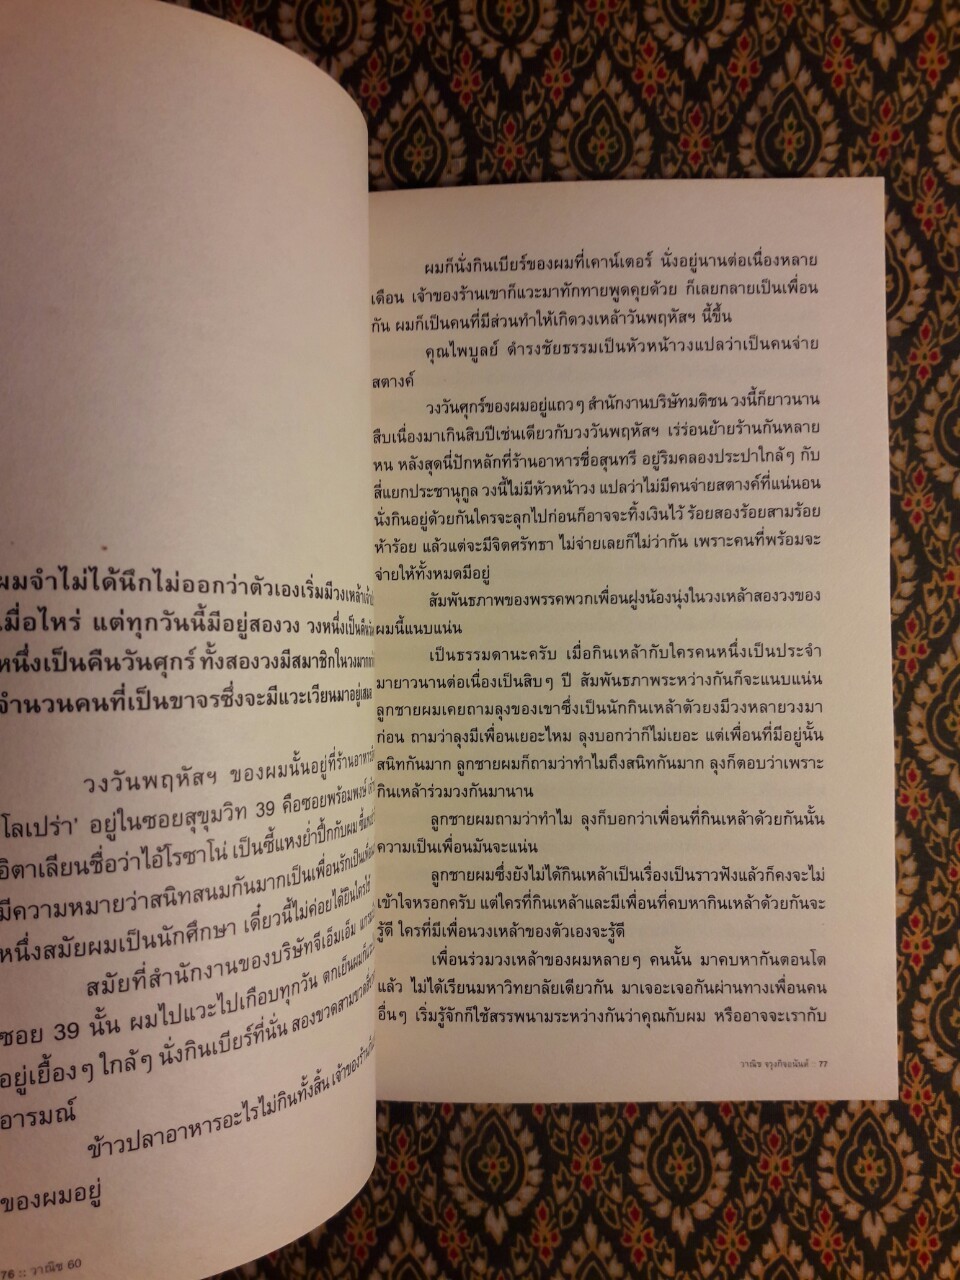 ผมจำไม่ได้นึกไม่ออกว่าตัวเองเริ่มมีวงเหล้า
เมื่อไหร่ แต่ทุกวันนี้มีอยู่สองวง วงหนึ่งเป็นคืน
หนึ่งเป็นคืนวันศุกร์ ทั้งสองวงมีสมาชิกในวง
จำนวนคนที่เป็นขาจรซึ่งจะมีแวะเวียนมาอยู่เสมอ
วงวันพฤหัสฯ ของผมนั้นอยู่ที่ร้านอาหาร
โลเปร่า' อยู่ในซอยสุขุมวิท 39 คือซอยพร้อมพงษ์
อิตาเลียนชื่อว่าไอ้โรซาโน่ เป็นซี้แหงย่ำปึ้กกับผม
มีความหมายว่าสนิทสนมกันมากเป็นเพื่อนรักเป็นเพื่อน
หนึ่งสมัยผมเป็นนักศึกษา เดี๋ยวนี้ไม่ค่อยได้ยินใครใช้
สมัยที่สำนักงานของบริษัทจีเอ็มเอ็ม
ซอย 39 นั้น ผมไปแวะไปเกือบทุกวัน ตกเย็นผมก็แวะ
อยู่เยื้องๆ ใกล้ๆ นั่งกินเบียร์ที่นั่น สองขวดสามขวด
อารมณ์
ข้าวปลาอาหารอะไรไม่กินทั้งสิ้น เจ้าของร้าน
ของผมอยู่
76 :: วาณิช 60
ผมก็นั่งกินเบียร์ของผมที่เคาน์เตอร์ นั่งอยู่นานต่อเนื่องหลาย
เดือน เจ้าของร้านเขาก็แวะมาทักทายพูดคุยด้วย ก็เลยกลายเป็นเพื่อน
กัน ผมก็เป็นคนที่มีส่วนทำให้เกิดวงเหล้าวันพฤหัสฯ นี้ขึ้น
คุณไพบูลย์ ดำรงชัยธรรมเป็นหัวหน้าวงแปลว่าเป็นคนจ่าย
สตางค์
วงวันศุกร์ของผมอยู่แถวๆ สำนักงานบริษัทมติชน วงนี้ก็ยาวนาน
สืบเนื่องมาเกินสิบปีเช่นเดียวกับวงวันพฤหัสฯ เร่ร่อนย้ายร้านกันหลาย
หน หลังสุดนี่ปักหลักที่ร้านอาหารชื่อสุนทรี อยู่ริมคลองประปาใกล้ๆ กับ
สี่แยกประชานุกูล วงนี้ไม่มีหัวหน้าวง แปลว่าไม่มีคนจ่ายสตางค์ที่แน่นอน
นั่งกินอยู่ด้วยกันใครจะลุกไปก่อนก็อาจจะทิ้งเงินไว้ ร้อยสองร้อยสามร้อย
ห้าร้อย แล้วแต่จะมีจิตศรัทธา ไม่จ่ายเลยก็ไม่ว่ากัน เพราะคนที่พร้อมจะ
จ่ายให้ทั้งหมดมีอยู่
สัมพันธภาพของพรรคพวกเพื่อนฝูงน้องนุ่งในวงเหล้าสองวงของ
ผมนี้แนบแน่น
เป็นธรรมดานะครับ เมื่อกินเหล้ากับใครคนหนึ่งเป็นประจำ
มายาวนานต่อเนื่องเป็นสิบๆ ปี สัมพันธภาพระหว่างกันก็จะแนบแน่น
ลูกชายผมเคยถามลุงของเขาซึ่งเป็นนักกินเหล้าตัวยงมีวงหลายวงมา
ก่อน ถามว่าลุงมีเพื่อนเยอะไหม ลุงบอกว่าก็ไม่เยอะ แต่เพื่อนที่มีอยู่นั้น
สนิทกันมาก ลูกชายผมก็ถามว่าทำไมถึงสนิทกันมาก ลุงก็ตอบว่าเพราะ
กินเหล้าร่วมวงกันมานาน
ลูกชายผมถามว่าทำไม ลุงก็บอกว่าเพื่อนที่กินเหล้าด้วยกันนั้น
ความเป็นเพื่อนมันจะแน่น
ลูกชายผมซึ่งยังไม่ได้กินเหล้าเป็นเรื่องเป็นราวฟังแล้วก็คงจะไม่
เข้าใจหรอกครับ แต่ใครที่กินเหล้าและมีเพื่อนที่คบหากินเหล้าด้วยกันจะ
รู้ดี ใครที่มีเพื่อนวงเหล้าของตัวเองจะรู้ดี
เพื่อนร่วมวงเหล้าของผมหลายๆ คนนั้น มาคบหากันตอนโต
แล้ว ไม่ได้เรียนมหาวิทยาลัยเดียวกัน มาเจอะเจอกันผ่านทางเพื่อนคน
อื่นๆ เริ่มรู้จักก็ใช้สรรพนามระหว่างกันว่าคุณกับผม หรืออาจจะเรากับ
วาณิช จรุงกิจอนันต์ :: 77